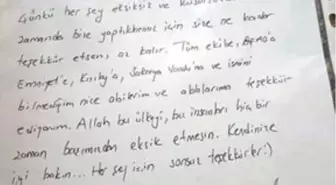 Çünkü her şey eksiksiz ve kusursuz
zamanda bile yaptıklarınız için size ne kadar
teşekkür etsem, az kalır. Tüm ekibe,
Emniyet'e, Kızılay'a, Sakarya Vandu'na ve ismini
bilmediğim nice abilerim ve ablalarıma teşekkür
ediyorum. Allah bu ülkeyi, bu insanları hiç bir
zaman başımızdan eksik etmesin. Kendinize
iyi bakın... Her şey için sonsuz teşekkürler :)